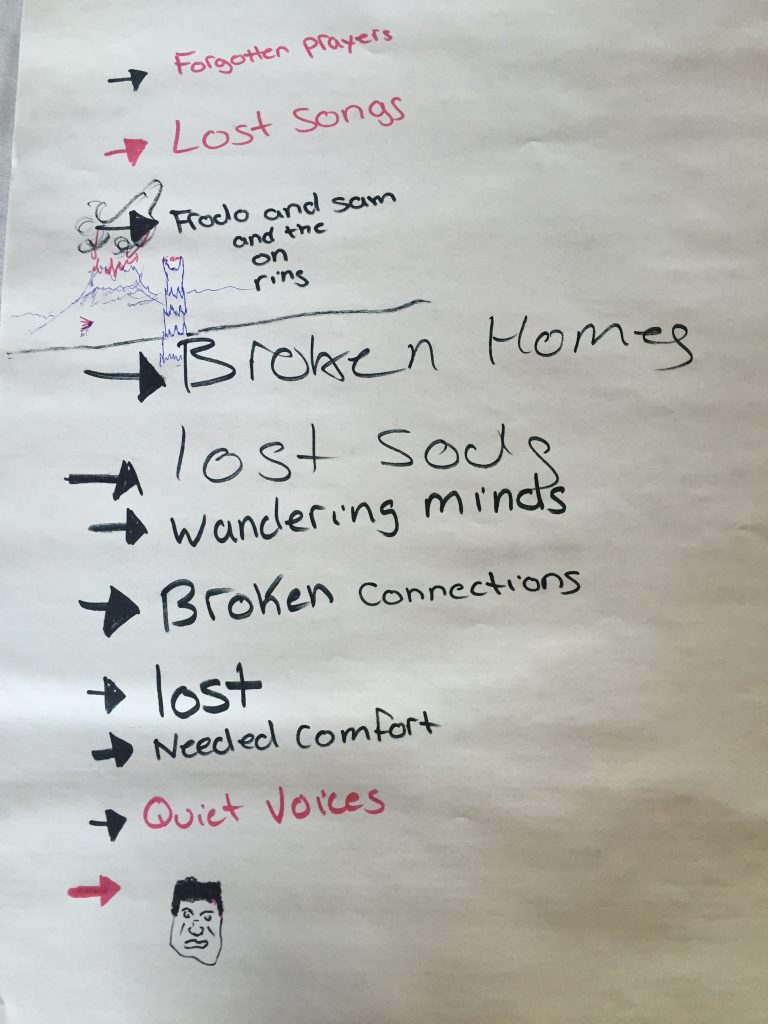 Forgotten prayers
Lost Songs
Frodo and sam
and the
on
ring
Broken Homes
lost souls
wandering minds
Broken connections
lost
Needed comfort
Quiet Voices